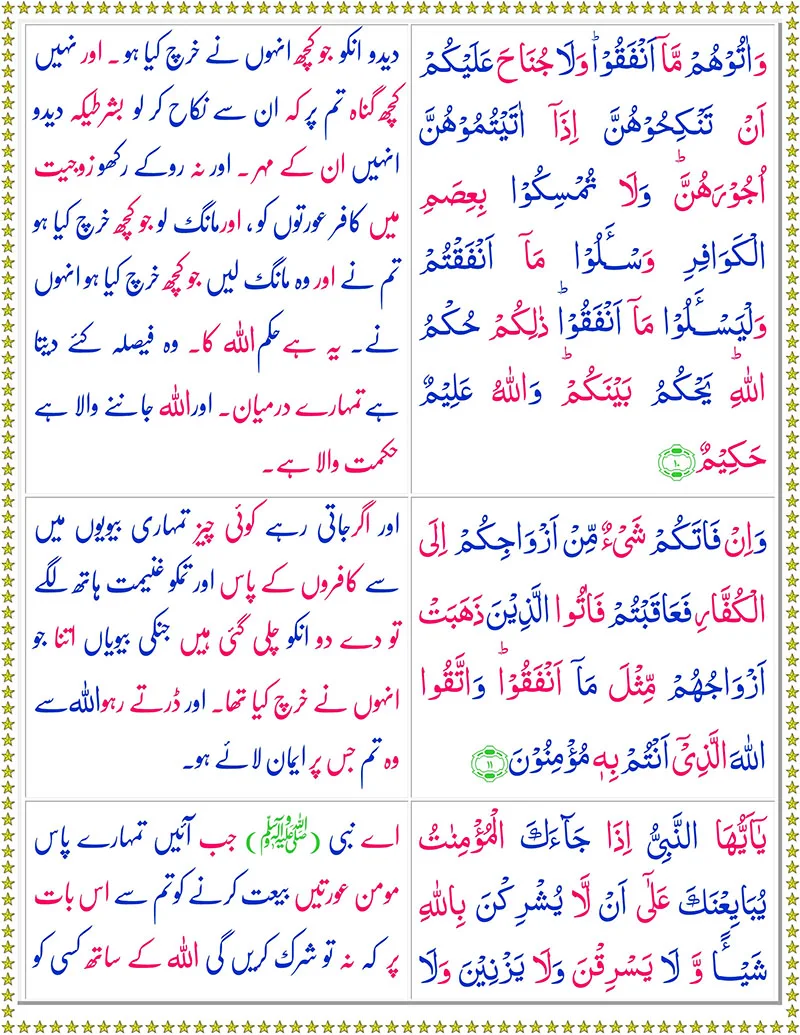 وَاٰتُوْهُمْ مَّاۤ اَنْفَقُوْا ؕ وَلَا جُنَاحَ عَلَيْكُمْ
اَنْ تَنْكِحُوْهُنَّ اِذَاۤ اٰتَيْتُمُوْهُنَّ
اُجُوْرَهُنَّ ؕ وَلَا تُمْسِكُوْا بِعِصَمِ
الْكَوَافِرِ وَسْـَٔلُوْا مَاۤ اَنْفَقْتُمْ
وَلْيَسْـَٔلُوْا مَاۤ اَنْفَقُوْا ؕ ذٰلِكُمْ حُكْمُ
اللّٰهِ ؕ يَحْكُمُ بَيْنَكُمْ ؕ وَاللّٰهُ عَلِيْمٌ
حَكِيْمٌ ۱۰
دیدو انکو جو کچھ انہوں نے خرچ کیا ہو ۔ اور نہیں
کچھ گناہ تم پر کہ ان سے نکاح کر لو بشرطیکہ دیدو
انہیں ان کے مہر ۔ اور نہ روکے رکھو زوجیت
میں کافر عورتوں کو ، اورمانگ لو جو کچھ خرچ کیا ہو
تم نے اور وہ مانگ لیں جو کچھ خرچ کیا ہو انہوں
نے ۔ یہ ہے حکم اللہ کا۔ وہ فیصلہ کئے دیتا
ہے تمہارے درمیان۔ اوراللہ جاننے والا ہے
حکمت والا ہے ۔
وَاِنْ فَاتَكُمْ شَىْءٌ مِّنْ اَزْوَاجِكُمْ اِلَى
الْكُفَّارِ فَعَاقَبْتُمْ فَاٰتُوا الَّذِيْنَ ذَهَبَتْ
اَزْوَاجُهُمْ مِّثْلَ مَاۤ اَنْفَقُوْا ؕ وَاتَّقُوا
اللّٰهَ الَّذِىْۤ اَنْتُمْ بِهٖ مُؤْمِنُوْنَ ۱۱
اور اگرجاتی رہے کوئی چیز تمہاری بیویوں میں
سے کافروں کے پاس اور تمکو غنیمت ہاتھ لگے
تو دے دو انکو چلی گئی ہیں جنکی بیویاں اتنا جو
انہوں نے خرچ کیا تھا۔ اور ڈرتے رہواللہ سے
وہ تم جس پر ایمان لائے ہو۔
يٰۤاَيُّهَا النَّبِىُّ اِذَا جَآءَكَ الْمُؤْمِنٰتُ
يُبَايِعْنَكَ عَلٰٓى اَنْ لَّا يُشْرِكْنَ بِاللّٰهِ
شَيْـًٔا وَّ لَا يَسْرِقْنَ وَلَا يَزْنِيْنَ وَلَا
اے نبی (ﷺ) جب آئیں تمہارے پاس
مومن عورتیں بیعت کرنے کو تم سے اس بات
پر کہ نہ تو شرک کریں گی اللہ کے ساتھ کسی کو